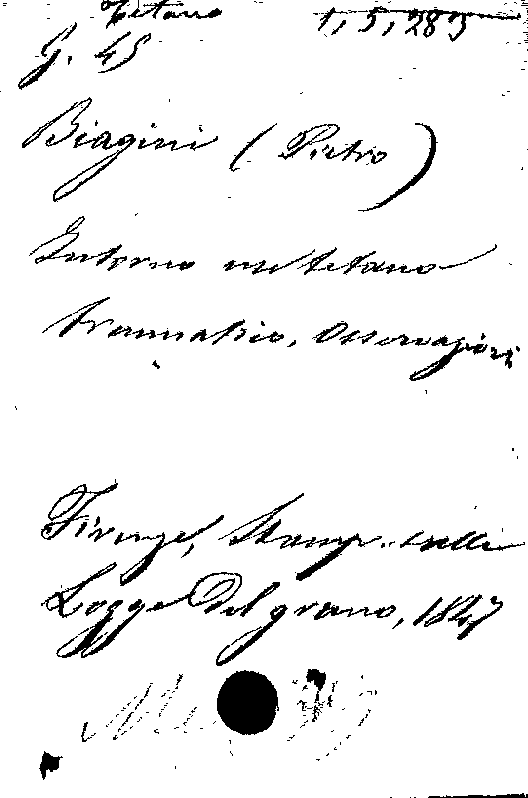 Tetano 1, 5, 283
G. 45
Biagini (Pietro)
Intorno un tetano
traumatico, Osservazioni
Firenze, Stamp. sulle
Logge del grano, 1847